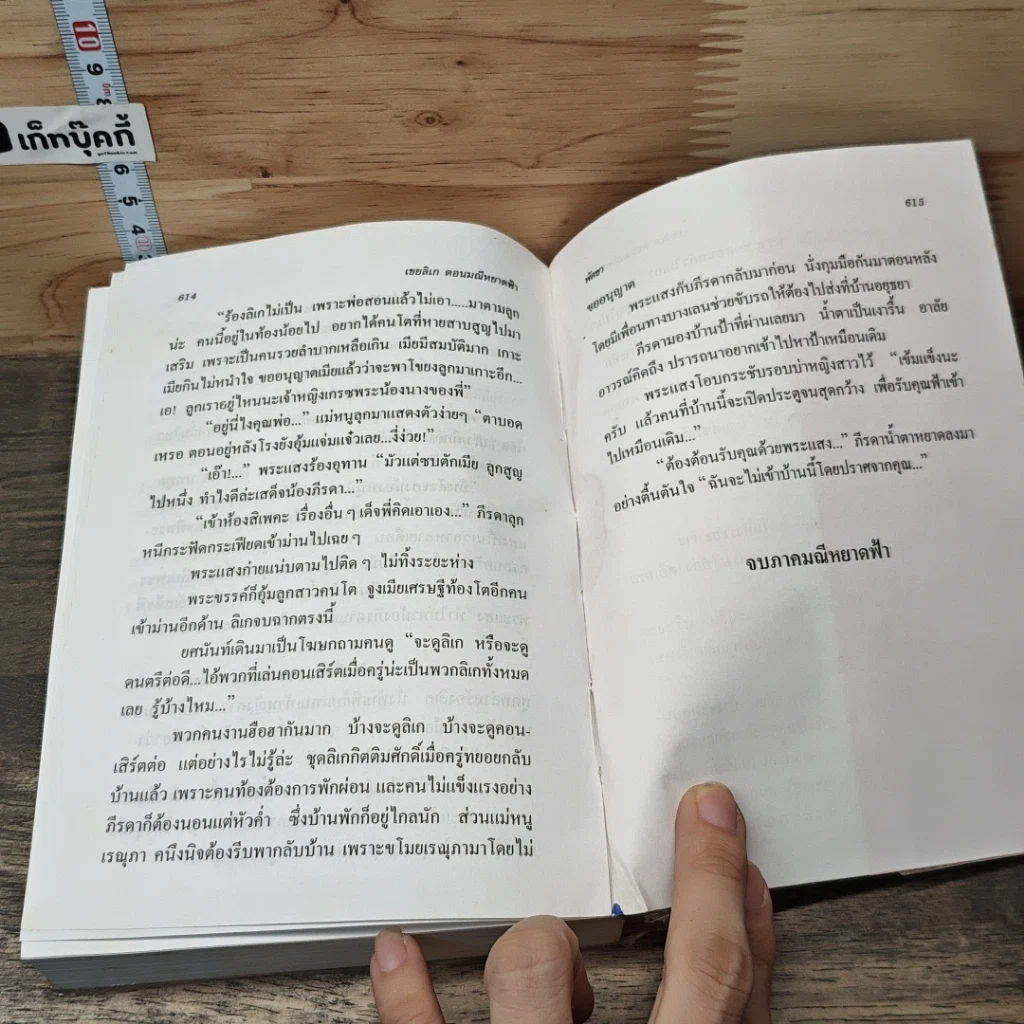 10
9
8
เก็ทบุ๊คกี้
6
5
4
614
เขยลิเก ตอนมณีหยาดฟ้า
“ร้องลิเกไม่เป็น เพราะพ่อสอนแล้วไม่เอา.....มาตามลูก
น่ะ คนนี้อยู่ในท้องน้อยไป อยากได้คนโตที่หายสาบสูญไปมา
เสริม เพราะเป็นคนรวยลำบากเหลือเกิน เมียมีสมบัติมาก เกาะ
เมียกินไม่หนำใจ ขออนุญาตเมียแล้วว่าจะพาโขยงลูกมาเกาะอีก...
เอ! ลูกเราอยู่ไหนนะเจ้าหญิงเกรซพระน้องนางของพี่”
“อยู่นี่ไงคุณพ่อ...” แม่หนูลูกมาแสดงตัวง่ายๆ “ตาบอด
เหรอ ตอนอยู่หลังโรงยังอุ้มแจ่มแจ๋วเลย...งี่ง่วย!”
“เอ๊า!...” พระแสงร้องอุทาน “มัวแต่ซบตักเมีย ลูกสูญ
ไปหนึ่ง ทำไงดีล่ะเสด็จน้องภีรดา...”
“เข้าห้องสิเพคะ เรื่องอื่น ๆ เด็จพี่คิดเอาเอง...” ภีรดาลุก
หนีกระฟัดกระเฟียดเข้าม่านไปเฉย ๆ
พระแสงก่ายแน่บตามไปติด ๆ ไม่ทิ้งระยะห่าง
พระขรรค์ก็อุ้มลูกสาวคนโต จูงเมียเศรษฐีท้องโตอีกคน
เข้าม่านอีกด้าน ลิเกจบฉากตรงนี้
ยศนันท์เดินมาเป็นโฆษกถามคนดู “จะดูลิเก หรือจะดู
ดนตรีต่อดี...ไอ้พวกที่เล่นคอนเสิร์ตเมื่อครู่น่ะเป็นพวกลิเกทั้งหมด
เลย รู้บ้างไหม...”
พวกคนงานฮือฮากันมาก บ้างจะดูลิเก บ้างจะดูคอน-
เสิร์ตต่อ แต่อย่างไรไม่รู้ล่ะ ชุดลิเกกิตติมศักดิ์เมื่อครู่ทยอยกลับ
บ้านแล้ว เพราะคนท้องต้องการพักผ่อน และคนไม่แข็งแรงอย่าง
ภีรดาก็ต้องนอนแต่หัวค่ำ ซึ่งบ้านพักก็อยู่ไกลนัก ส่วนแม่หนู
เรณุภา คนึงนิจต้องรีบพากลับบ้าน เพราะขโมยเรณุภามาโดยไม่
พัดชา
615
ขออนุญาต
พระแสงกับภีรดากลับมาก่อน นั่งกุมมือกันมาตอนหลัง
โดยมีเพื่อนทางบางเลนช่วยขับรถให้ต้องไปส่งที่บ้านอยุธยา
ภีรดามองบ้านป้าที่ผ่านเลยมา น้ำตาเป็นเงารื้น อาลัย
อาวรณ์คิดถึง ปรารถนาอยากเข้าไปหาป้าเหมือนเดิม
พระแสงโอบกระชับรอบบ่าหญิงสาวไว้ “เข้มแข็งนะ
ครับ แล้วคนที่บ้านนี้จะเปิดประตูจนสุดกว้าง เพื่อรับคุณฟ้าเข้า
ไปเหมือนเดิม...”
“ต้องต้อนรับคุณด้วยพระแสง...” ภีรดาน้ำตาหยาดลงมา
อย่างตื้นตันใจ “ฉันจะไม่เข้าบ้านนี้โดยปราศจากคุณ...”
จบภาคมณีหยาดฟ้า